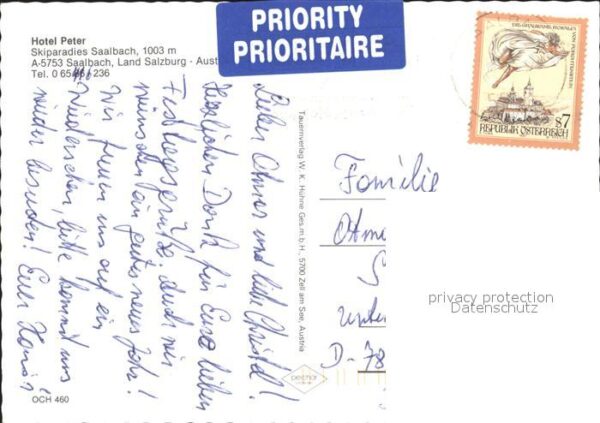 Hotel Peter
Skiparadies Saalbach, 1003 m
A-5753 Saalbach, Land Salzburg - Aust
Tel. 0 65 46 / 236
PRIORITY
PRIORITAIRE
REPUBLIK ÖSTERREICH
S7
Lieber Otmar und liebe Christel!
Herzlichen Dank für Eure lieben
Festtagsgrüße. Auch wir
wünschen ein gutes neues Jahr!
Wir freuen uns auf ein
Wiedersehen, bitte kommt uns
wieder besuchen! Eure
Tauernverlag W. K. Hühne Ges.m.b.H., 5700 Zell am See, Austria
Familie
Otma
S
Unter
D-78
privacy protection
Datenschutz
OCH 460